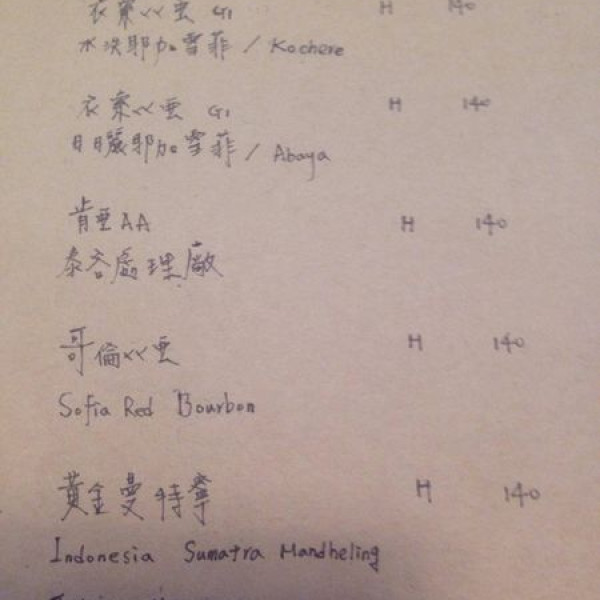 衣索ㄍㄍ亞 G1 H 140
水洗耶加雪菲 / Kochere
衣索ㄍㄍ亞 G1 H 140
日曬耶加雪菲 / Abaya
肯亞AA H 140
泰谷處理廠
哥倫ㄍㄍ亞 H 140
Sofia Red Bourbon
黃金曼特寧 H 140
Indonesia Sumatra Mandheling